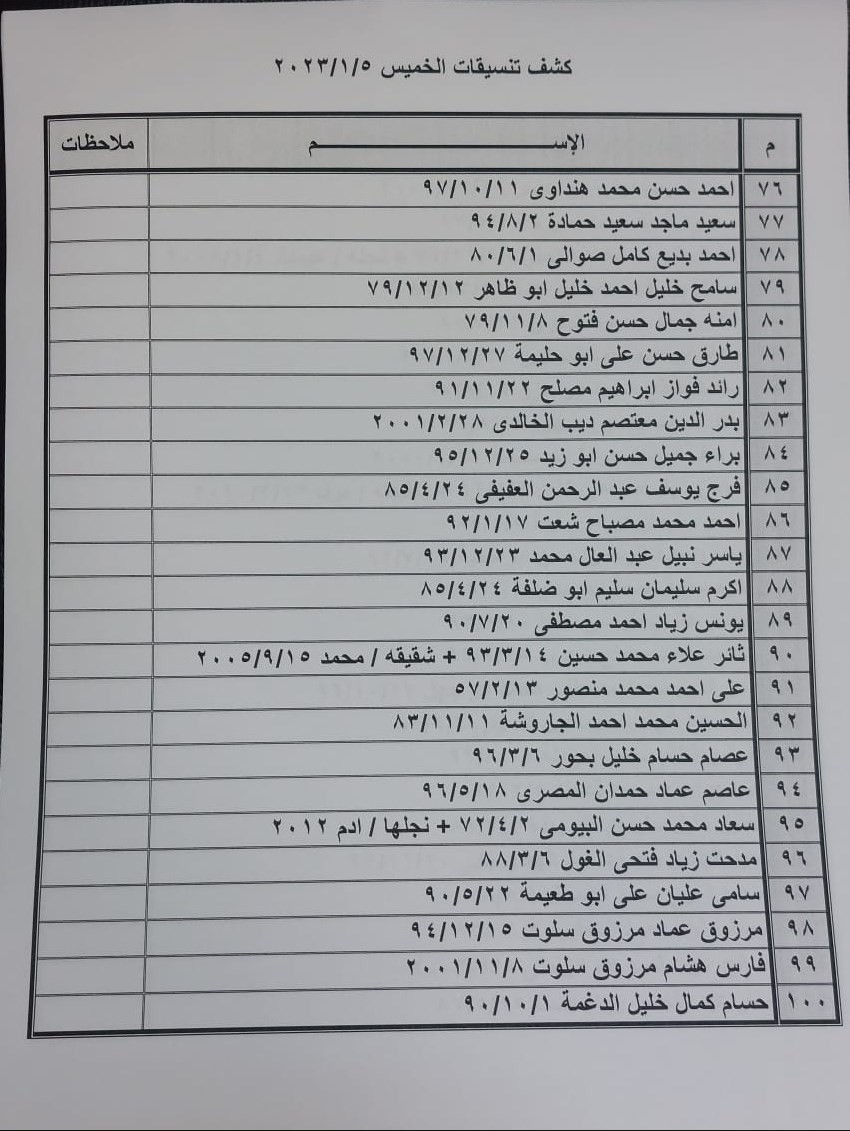 كشف تنسيقات الخميس ٢٠٢٣/١/٥
م الإســــــــم ملاحظات
٧٦ احمد حسن محمد هنداوى ٩٧/١٠/١١
٧٧ سعيد ماجد سعيد حمادة ٩٤/٨/٢
٧٨ احمد بديع كامل صوالى ٨٠/٦/١
٧٩ سامح خليل احمد خليل ابو ظاهر ٧٩/١٢/١٢
٨٠ امنه جمال حسن فتوح ٧٩/١١/٨
٨١ طارق حسن على ابو حليمة ٩٧/١٢/٢٧
٨٢ رائد فواز ابراهيم مصلح ٩١/١١/٢٢
٨٣ بدر الدين معتصم ديب الخالدى ٢٠٠١/٢/٢٨
٨٤ براء جميل حسن ابو زيد ٩٥/١٢/٢٥
٨٥ فرج يوسف عبد الرحمن العفيفى ٨٥/٤/٢٤
٨٦ احمد محمد مصباح شعت ٩٢/١/١٧
٨٧ ياسر نبيل عبد العال محمد ٩٣/١٢/٢٣
٨٨ اكرم سليمان سليم ابو ضلفة ٨٥/٤/٢٤
٨٩ يونس زياد احمد مصطفى ٩٠/٧/٢٠
٩٠ ثائر علاء محمد حسين ٩٣/٣/١٤ + شقيقه / محمد ٢٠٠٥/٩/١٥
٩١ على احمد محمد منصور ٥٧/٢/١٣
٩٢ الحسين محمد احمد الجاروشة ٨٣/١١/١١
٩٣ عصام حسام خليل بحور ٩٦/٣/٦
٩٤ عاصم عماد حمدان المصرى ٩٦/٥/١٨
٩٥ سعاد محمد حسن البيومى ٧٢/٤/٢ + نجلها / ادم ٢٠١٢
٩٦ مدحت زياد فتحى الغول ٨٨/٣/٦
٩٧ سامى عليان على ابو طعيمة ٩٠/٥/٢٢
٩٨ مرزوق عماد مرزوق سلوت ٩٤/١٢/١٥
٩٩ فارس هشام مرزوق سلوت ٢٠٠١/١١/٨
١٠٠ حسام كمال خليل الدغمة ٩٠/١٠/١